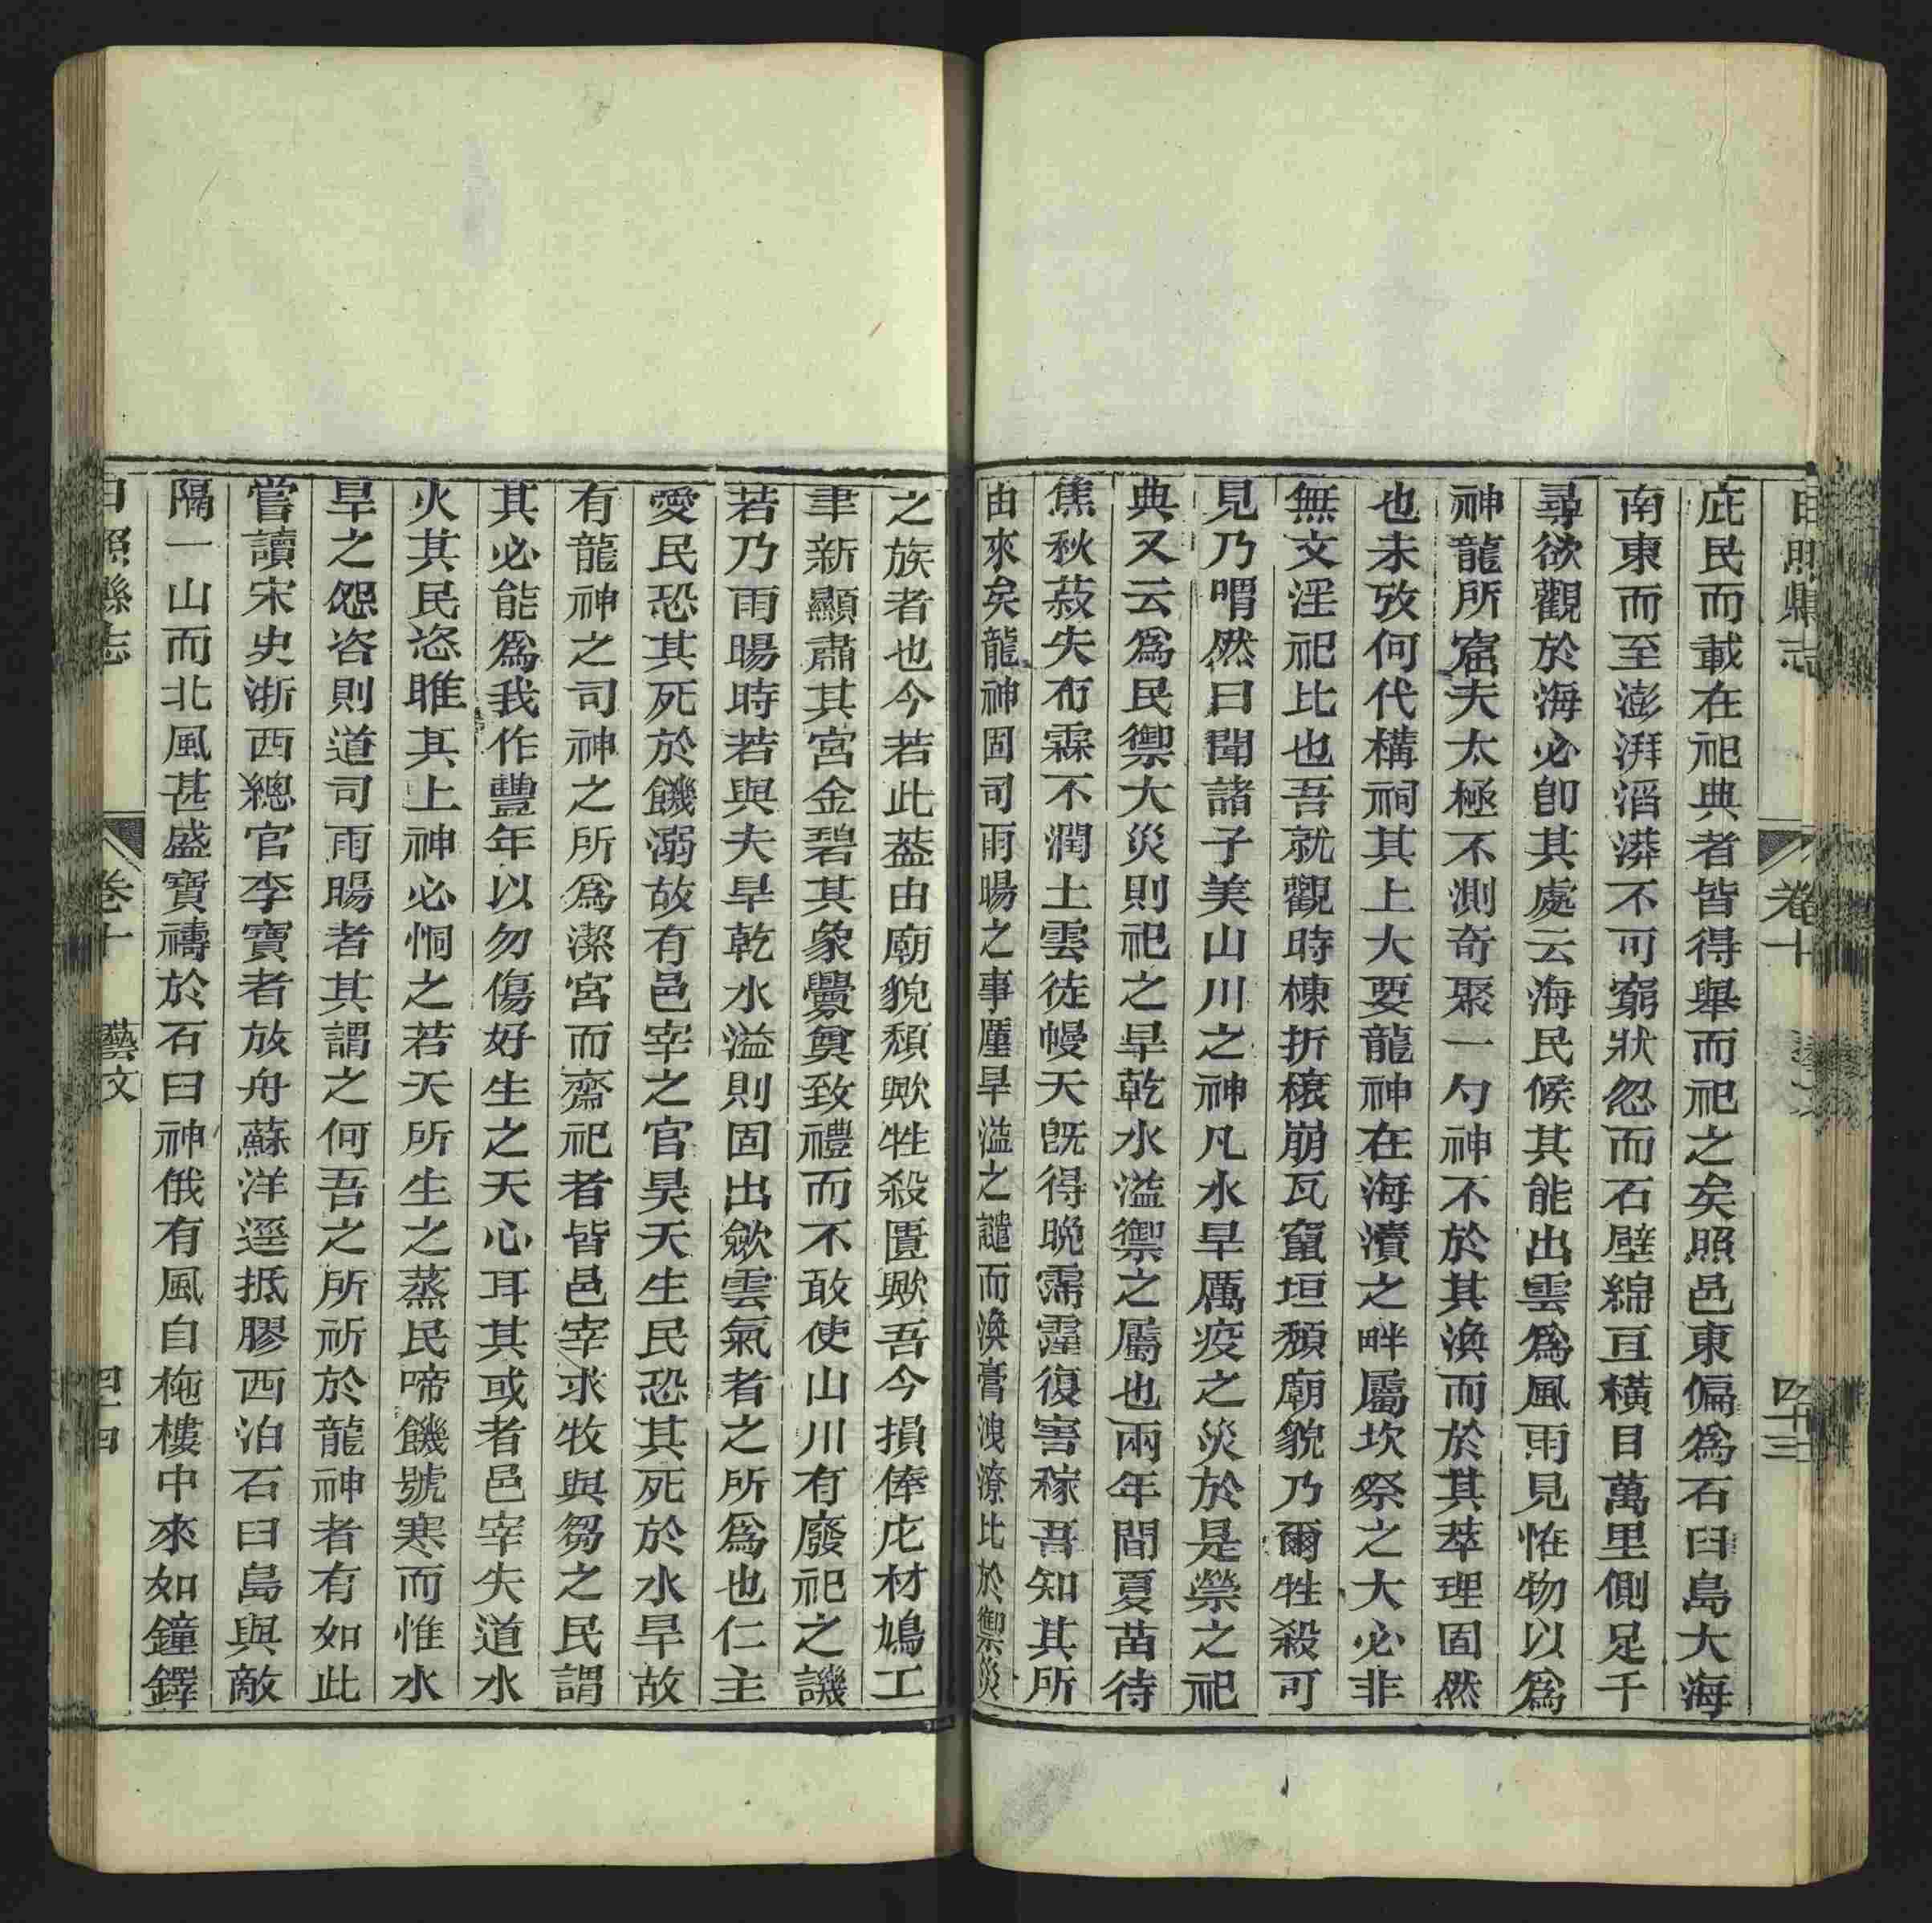 日照縣志 卷十 四十三
庇民而載在祀典者皆得舉而祀之矣照邑東偏爲石臼島大海
南東而至澎湃滔漭不可窮狀忽而石壁綿亙橫目萬里側足千
尋欲觀於海必卽其處云海民候其能出雲爲風雨見恠物以爲
神龍所窟夫太極不測奇聚一勺神不於其渙而於其萃理固然
也未攷何代構祠其上大要龍神在海瀆之畔屬坎祭之大必非
無文淫祀比也吾就觀時棟折榱崩瓦竄垣頹廟貌乃爾牲殺可
見乃喟然曰聞諸子美山川之神凡水旱厲疫之災於是禜之祀
典又云爲民禦大災則祀之旱乾水溢禦之屬也兩年間夏苗待
焦秋菽失布霖不潤土雲徒幔天旣得晩霈霪復害稼吾知其所
由來矣龍神固司雨暘之事厪旱溢之譴而渙膏洩潦比於禦災
之族者也今若此葢由廟貌頹歟牲殺匱歟吾今損俸庀材鳩工
聿新顯肅其宮金碧其象釁奠致禮而不敢使山川有廢祀之譏
若乃雨暘時若與夫旱乾水溢則固出歛雲氣者之所爲也仁主
愛民恐其死於饑溺故有邑宰之官昊天生民恐其死於水旱故
有龍神之司神之所爲潔宮而齋祀者皆邑宰求牧與芻之民謂
其必能爲我作豐年以勿傷好生之天心耳其或者邑宰失道水
火其民恣睢其上神必恫之若天所生之蒸民啼饑號寒而惟水
旱之怨咨則道司雨暘者其謂之何吾之所祈於龍神者有如此
嘗讀宋史浙西總官李寶者放舟蘇洋逕抵膠西泊石臼島與敵
隔一山而北風甚盛寶禱於石臼神俄有風自柂樓中來如鐘鐸
日照縣志 卷十 藝文 四十四